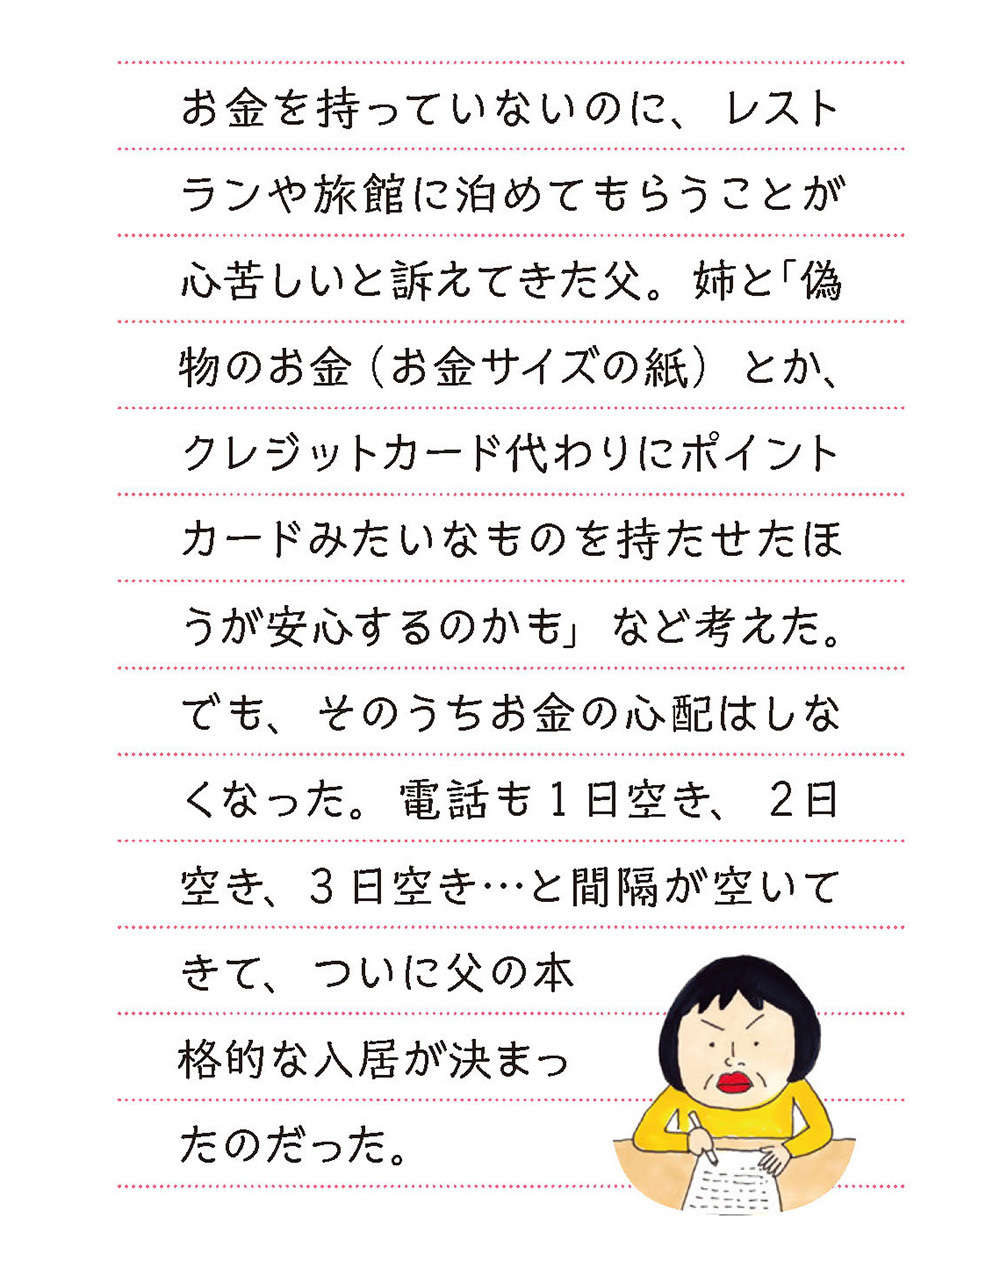 お金を持っていないのに、レスト
ランや旅館に泊めてもらうことが
心苦しいと訴えてきた父。姉と「偽
物のお金（お金サイズの紙）とか、
クレジットカード代わりにポイント
カードみたいなものを持たせたほ
うが安心するのかも」など考えた。
でも、そのうちお金の心配はしな
くなった。電話も1日空き、2日
空き、3日空き…と間隔が空いて
きて、ついに父の本
格的な入居が決まっ
たのだった。